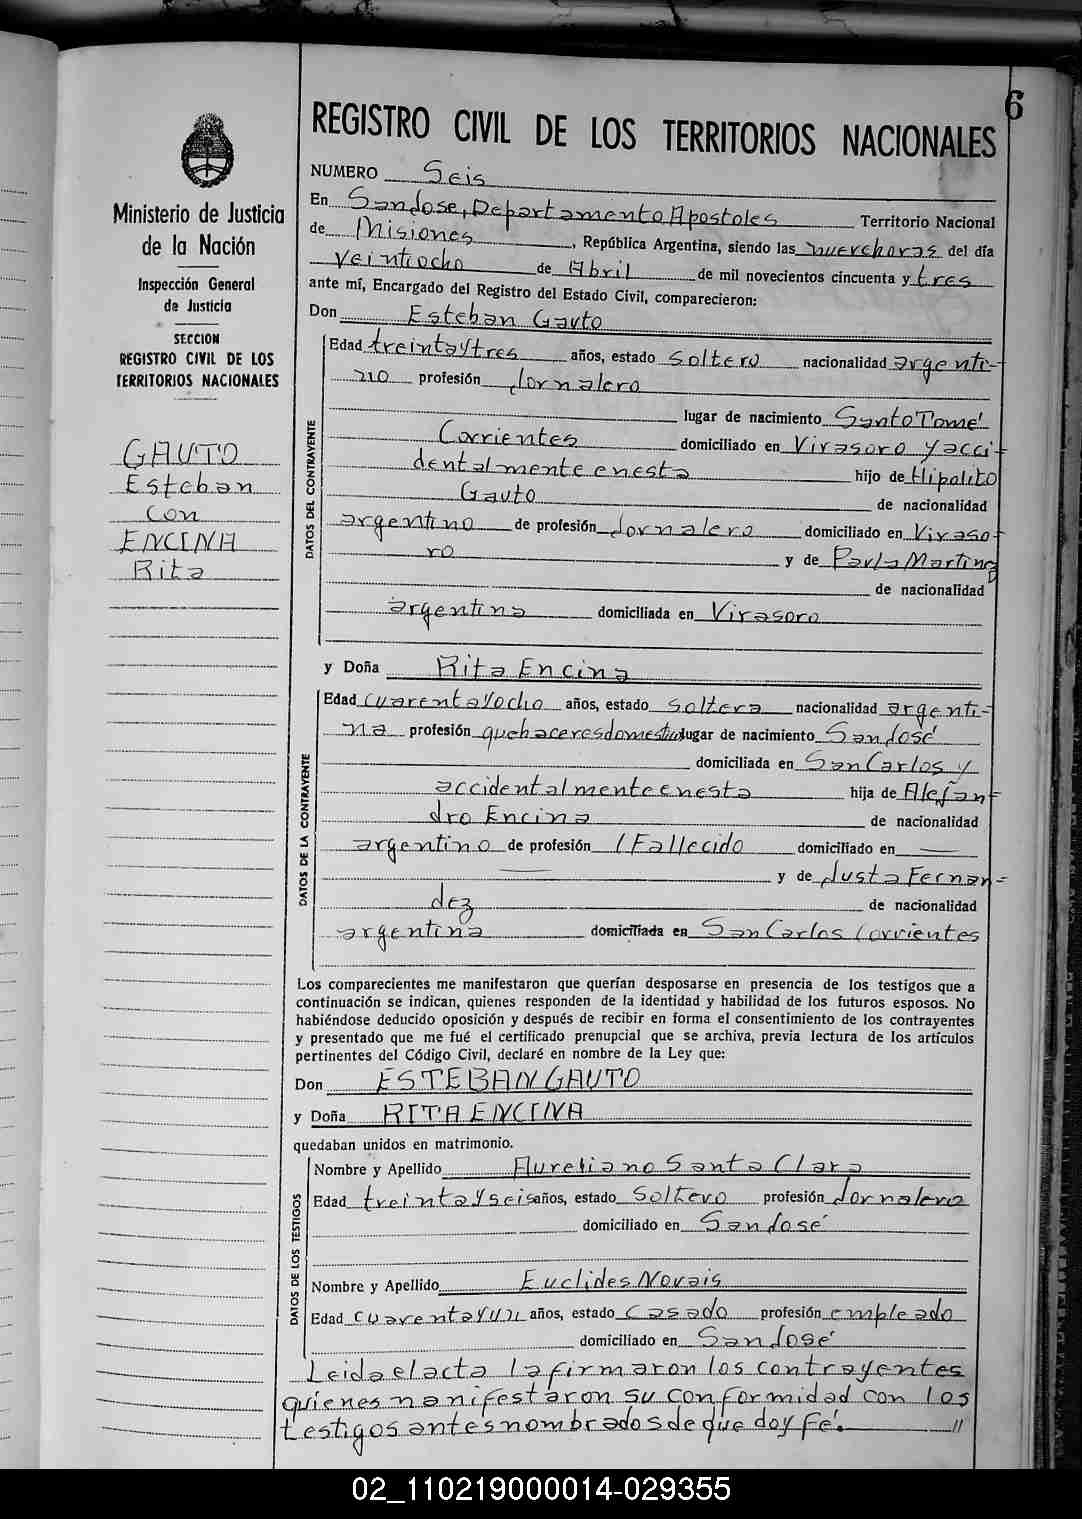 6
REGISTRO CIVIL DE LOS TERRITORIOS NACIONALES
Ministerio de Justicia
de la Nación
Inspección General
de Justicia
SECCION
REGISTRO CIVIL DE LOS
TERRITORIOS NACIONALES
GAUTO
Esteban
con
ENCINA
Rita
NUMERO Seis
En San Jose, Departamento Apostoles Territorio Nacional
de Misiones, República Argentina, siendo las nueve horas del día
Veintiocho de Abril de mil novecientos cincuenta y tres
ante mí, Encargado del Registro del Estado Civil, comparecieron:
Don Esteban Gauto
DATOS DEL CONTRAYENTE
Edad treinta y tres años, estado soltero nacionalidad argenti-
no profesión Jornalero
lugar de nacimiento Santo Tomé
Corrientes domiciliado en Virasoro y acci-
dentalmente en esta hijo de Hipolito
Gauto de nacionalidad
argentino de profesión Jornalero domiciliado en Viraso-
ro y de Paula Martinez
de nacionalidad
argentina domiciliada en Virasoro
y Doña Rita Encina
DATOS DE LA CONTRAYENTE
Edad cuarenta y ocho años, estado soltera nacionalidad argenti-
na profesión quehaceres domesticos lugar de nacimiento San José
domiciliada en San Carlos y
accidentalmente en esta hija de Alejan-
dro Encina de nacionalidad
argentino de profesión (Fallecido domiciliado en —
— y de Justa Fernan-
dez de nacionalidad
argentina domiciliada en San Carlos Corrientes
Los comparecientes me manifestaron que querían desposarse en presencia de los testigos que a
continuación se indican, quienes responden de la identidad y habilidad de los futuros esposos. No
habiéndose deducido oposición y después de recibir en forma el consentimiento de los contrayentes
y presentado que me fué el certificado prenupcial que se archiva, previa lectura de los artículos
pertinentes del Código Civil, declaré en nombre de la Ley que:
Don ESTEBAN GAUTO
y Doña RITA ENCINA
quedaban unidos en matrimonio.
DATOS DE LOS TESTIGOS
Nombre y Apellido Aureliano Santa Clara
Edad treinta y seis años, estado Soltero profesión Jornalero
domiciliado en San José
Nombre y Apellido Euclides Novais
Edad cuarenta y un años, estado casado profesión empleado
domiciliado en San José
Leida el acta la firmaron los contrayentes
quienes manifestaron su conformidad con los
testigos antes nombrados de que doy fé. //
02_110219000014-029355